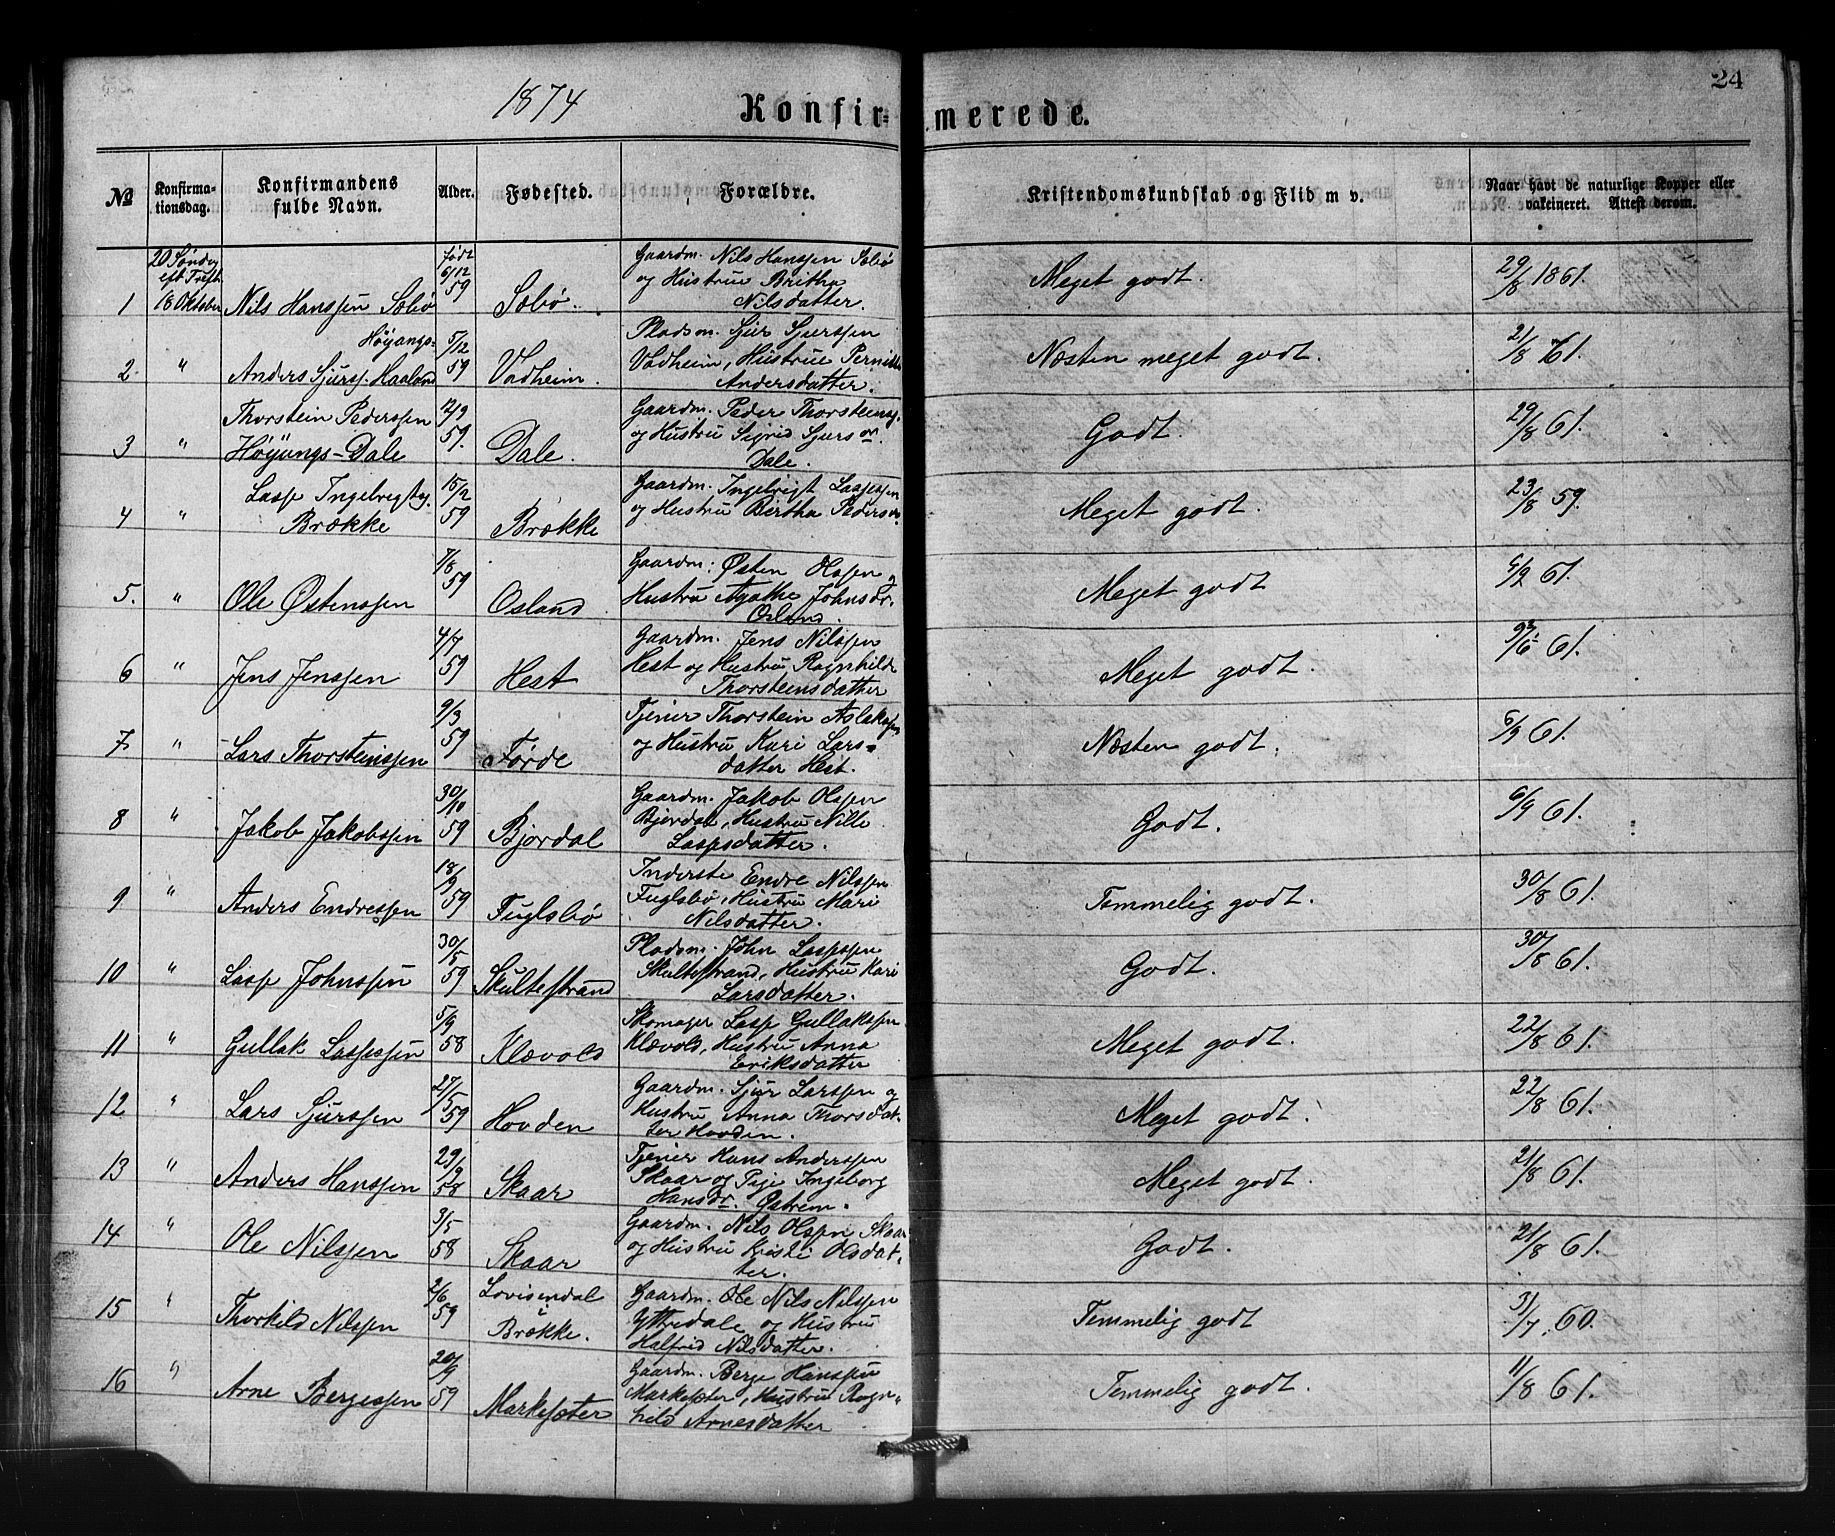 24
1874
Konfir= merede.
No
Konfirma-
tionsdag.
Konfirmandens
fulde Navn.
Alder.
Fødested.
Forældre.
Kristendomskundskab og Flid m v.
Naar havt de naturlige Kopper eller
vakcineret. Attest derom.
1
20 Søndag
eft Trefth.
18 Oktober
Nils Hanssen Sæbø
født
6/12
59
Sæbø.
Gaardm. Nils Hanssen Sæbø
og Hustrue Britha
Nilsdatter.
Meget godt.
29/8 1861.
2.
"
Høyangs-
Anders Sjurss. Haaland
5/12
59
Vadheim.
Pladsm. Sjur Sjurssen
Vadheim, Hustrue Pernille
Andersdatter.
Næsten meget godt.
21/8 61.
3
"
Thorstein Pederssen
Høyangs-Dale
12/9
59.
Dale.
Gaardm. Peder Thorsteinss.
og Hustru Sigrid Sjursdr.
Dale.
Godt.
29/8 61.
4
"
Lasse Ingebrigts.
Brække
15/2
59
Brække
Gaardm. Ingebrigt Lassessen
og Hustru Birtha Pedersdr.
Meget godt.
23/8 59.
5.
"
Ole Østenssen
7/8
59
Osland
Gaardm: Østen Olssen og
Hustru Agathe Johnsdr.
Osland.
Meget godt
61.
6
"
Jens Jenssen
4/7
59
Hest
Gaardm. Jens Nilssen
Hest og Hustru Ragnhilde
Thorsteinsdatter
Meget godt.
61.
7
"
Lars Thorsteinssen
9/3
59
Førde
Tjener Thorstein Aslakssen
og Hustru Kari Lars-
datter Hest.
Næsten godt.
6/9 61.
8
"
Jakob Jakobssen
30/10
59
Bjordal
Gaardm. Jakob Olssen
Bjordal, Hustru Nille
Lassesdatter.
Godt.
6/9 61.
9
"
Anders Endressen
18/9
59
Fuglsbø
Inderste Endre Nilssen
Fuglsbø, Hustru Mari
Nilsdatter.
Temmelig godt.
30/8 61.
10
"
Lasse Johnssen
30/5
59
Skultestrand
Pladsm. John Lassessen
Skultestrand, Hustru Kari
Larsdatter.
Godt.
30/8 61.
11
"
Gullak Lassessen
5/9
58
Klævold
Skomager Lasse Gullakssen
Klævold, Hustru Anna
Eriksdatter
Meget godt.
22/8 61.
12
"
Lars Sjurssen
27/5
59
Hovden
Gaardm. Sjur Larssen og
Hustru Anna Thorsdat-
ter Hovden.
Meget godt.
22/8 61.
13
"
Anders Hanssen
29/9
58
Skaar
Tjener Hans Anderssen
Skaar og Pige Ingeborg
Hansdr. Østrem.
Meget godt.
21/8 61.
14
"
Ole Nilssen
3/5
58
Skaar
Gaardm. Nils Olssen Skaar
og Hustru Kristi Olsdat-
ter.
Godt.
21/8 61.
15
"
Thorkild Nilssen
2/6
59
Lovisendal
i
Brække.
Gaardm. Ole Nils Nilssen
Yttredale og Hustru
Halfrid Nilsdatter.
Temmelig godt
31/7 60.
16
"
Arne Bergessen
20/9
59
Markesæter
Gaardm. Berge Hanssen
Markesæter, Hustru Ragn-
hild Arnesdatter
Temmelig godt.
11/8 61.